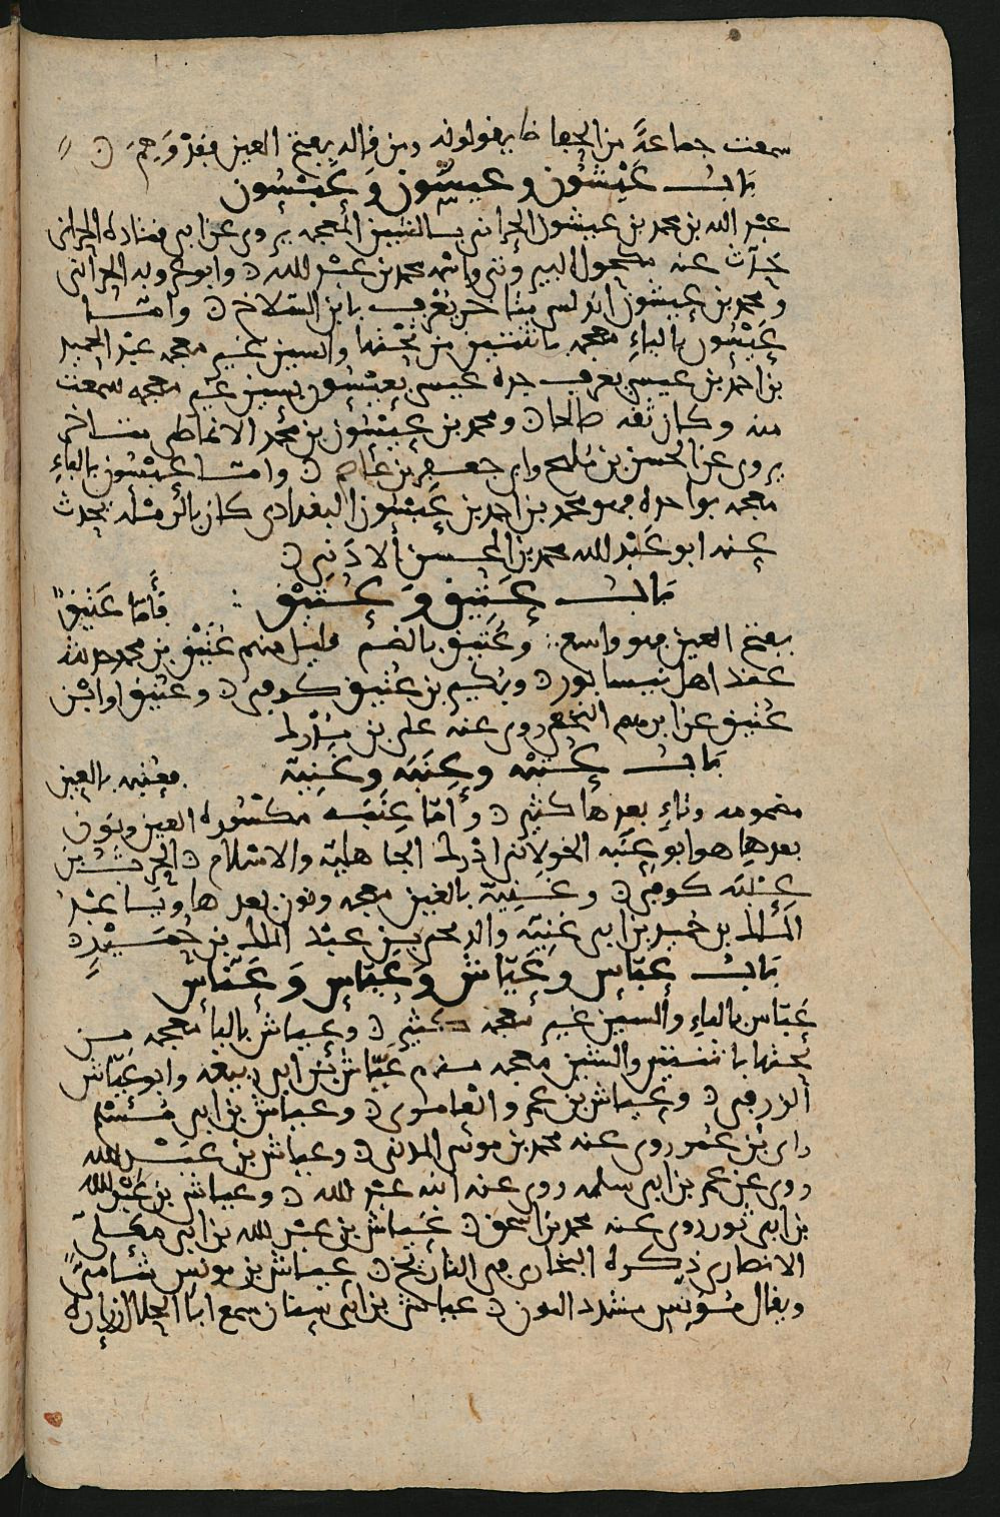 سمعت جماعة من الحفاظ يقولونه ومن قاله بفتح العين فقد وهم
باب عيشون وعيسون وعبسون
عبد الله بن محمد بن عيشون الحراني بالشين المعجمه يروي عن ابي قتاده الحراني
حدث عنه مكحول البيروتي وابنه محمد بن عبد الله وابو عروبه الحراني
ومحمد بن عيشون اندلسي متاخر يعرف بابن السلاخ وامــا
عيسون بالياء معجمه باثنتين من تحتها والسين غير معجمه عبد الحميد
بن احمد بن عيسى يعرف جده عيسى بعيسون بسين غير معجمه سمعت
منه وكان ثقه صالحا ومحمد بن عيسون بن محمد الانماطي متاخر
يروي عن الحسن بن مليح وابي جعفر بن عاصم وامــا عبسون بالباء
معجمه بواحده فهو محمد بن احمد بن عبسون البغدادي كان بالرمله يحدث
عنه ابو عبد الله محمد بن المحسن الاذني
باب عتيق وعتيق فأما عتيق
بفتح العين فهو واسع وعتيق بالضم قليل منهم عتيق بن محمد حدثنا
عنه اهل نيسابور وبكير بن عتيق كوفي وعتيق او ابن
عتيق عن ابرهيم النخعي روى عنه علي بن مدرك
باب عتبه وعنبه وغنية فعتبه بالعين
مضمومه وتاء بعدها كثير وأما عنبه مكسوره العين ونون
بعدها هو ابو عنبه الخولاني ادرك الجاهلية والاسلام الحرث بن
عنبه كوفي وغنية بالغين معجمه ونون بعدها ويا عبد
الملك بن حميد بن ابي غنية والد يحيى بن عبد الملك بن حميد
باب عباس وعياش وعباس وعناس
عباس بالباء والسين غير معجمه كثير وعياش باليا معجمه من
تحتها باثنتين والشين معجمه منهم عياش بن ابي ربيعه وابو عياش
الزرقي وعياش بن عمرو العامري وعياش بن ابي مسلم
راى بن عمر روى عنه محمد بن موسى المدني وعياش بن عبد الله
روى عن عمر بن ابي سلمه روى عنه ابنه عبد الله وعياش بن عبد الله
بن ابي ثور روى عنه محمد بن اسحق عياش بن عبد الله بن ابي معلى
الانصاري ذكره البخاري في التاريخ عياش بن مونس شامي
ويقال مؤنس مشدد النون عياش بن ابي سنان سمع ابا الجلال زراره